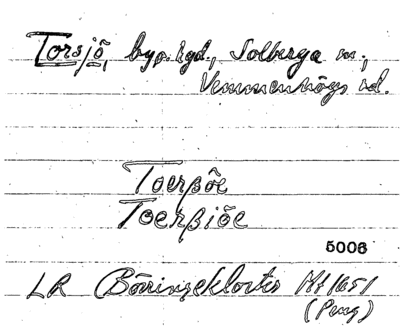 Torsjö, byn. Kgd., Solberga sn;
Vemmenhögs hd.
Toerßöe
Toerßiöe
5006
LR Börringekloster Mf 1651
(Peng)